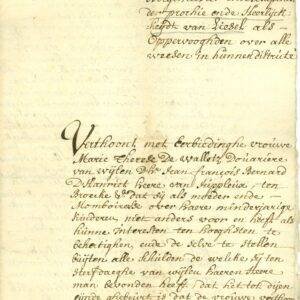 der prochie ende Heerlijck
heijdt van Liedel als
Oppervooghden over alle
weesen in hunnen districte
Verthoont met Eerbiedinghe vrouwe
Marie Therese De Wallets Douariere
van wijlen Jean François Bernard
D'Hanriet heere van ten
Broecke &a dat sij als moeder ende
Momboiresse over haere minderjarige
kinderen niet anders voor en heeft als
hunne Interesten ten hooghsten te
behertighen, ende de selve te stellen
buijten alle schulden de welke sij ten
sterfdaeghe van wijlen haeren Heere
man bevonden heeft dat tot dijen
eijnde